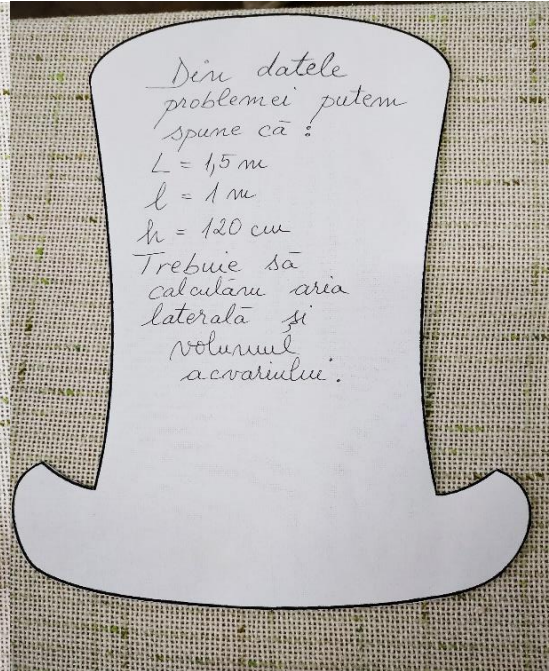 Din datele
problemei putem
spune că :
L = 1,5 m
l = 1 m
h = 120 cm
Trebuie să
calculăm aria
laterală și
volumul
acvariului.